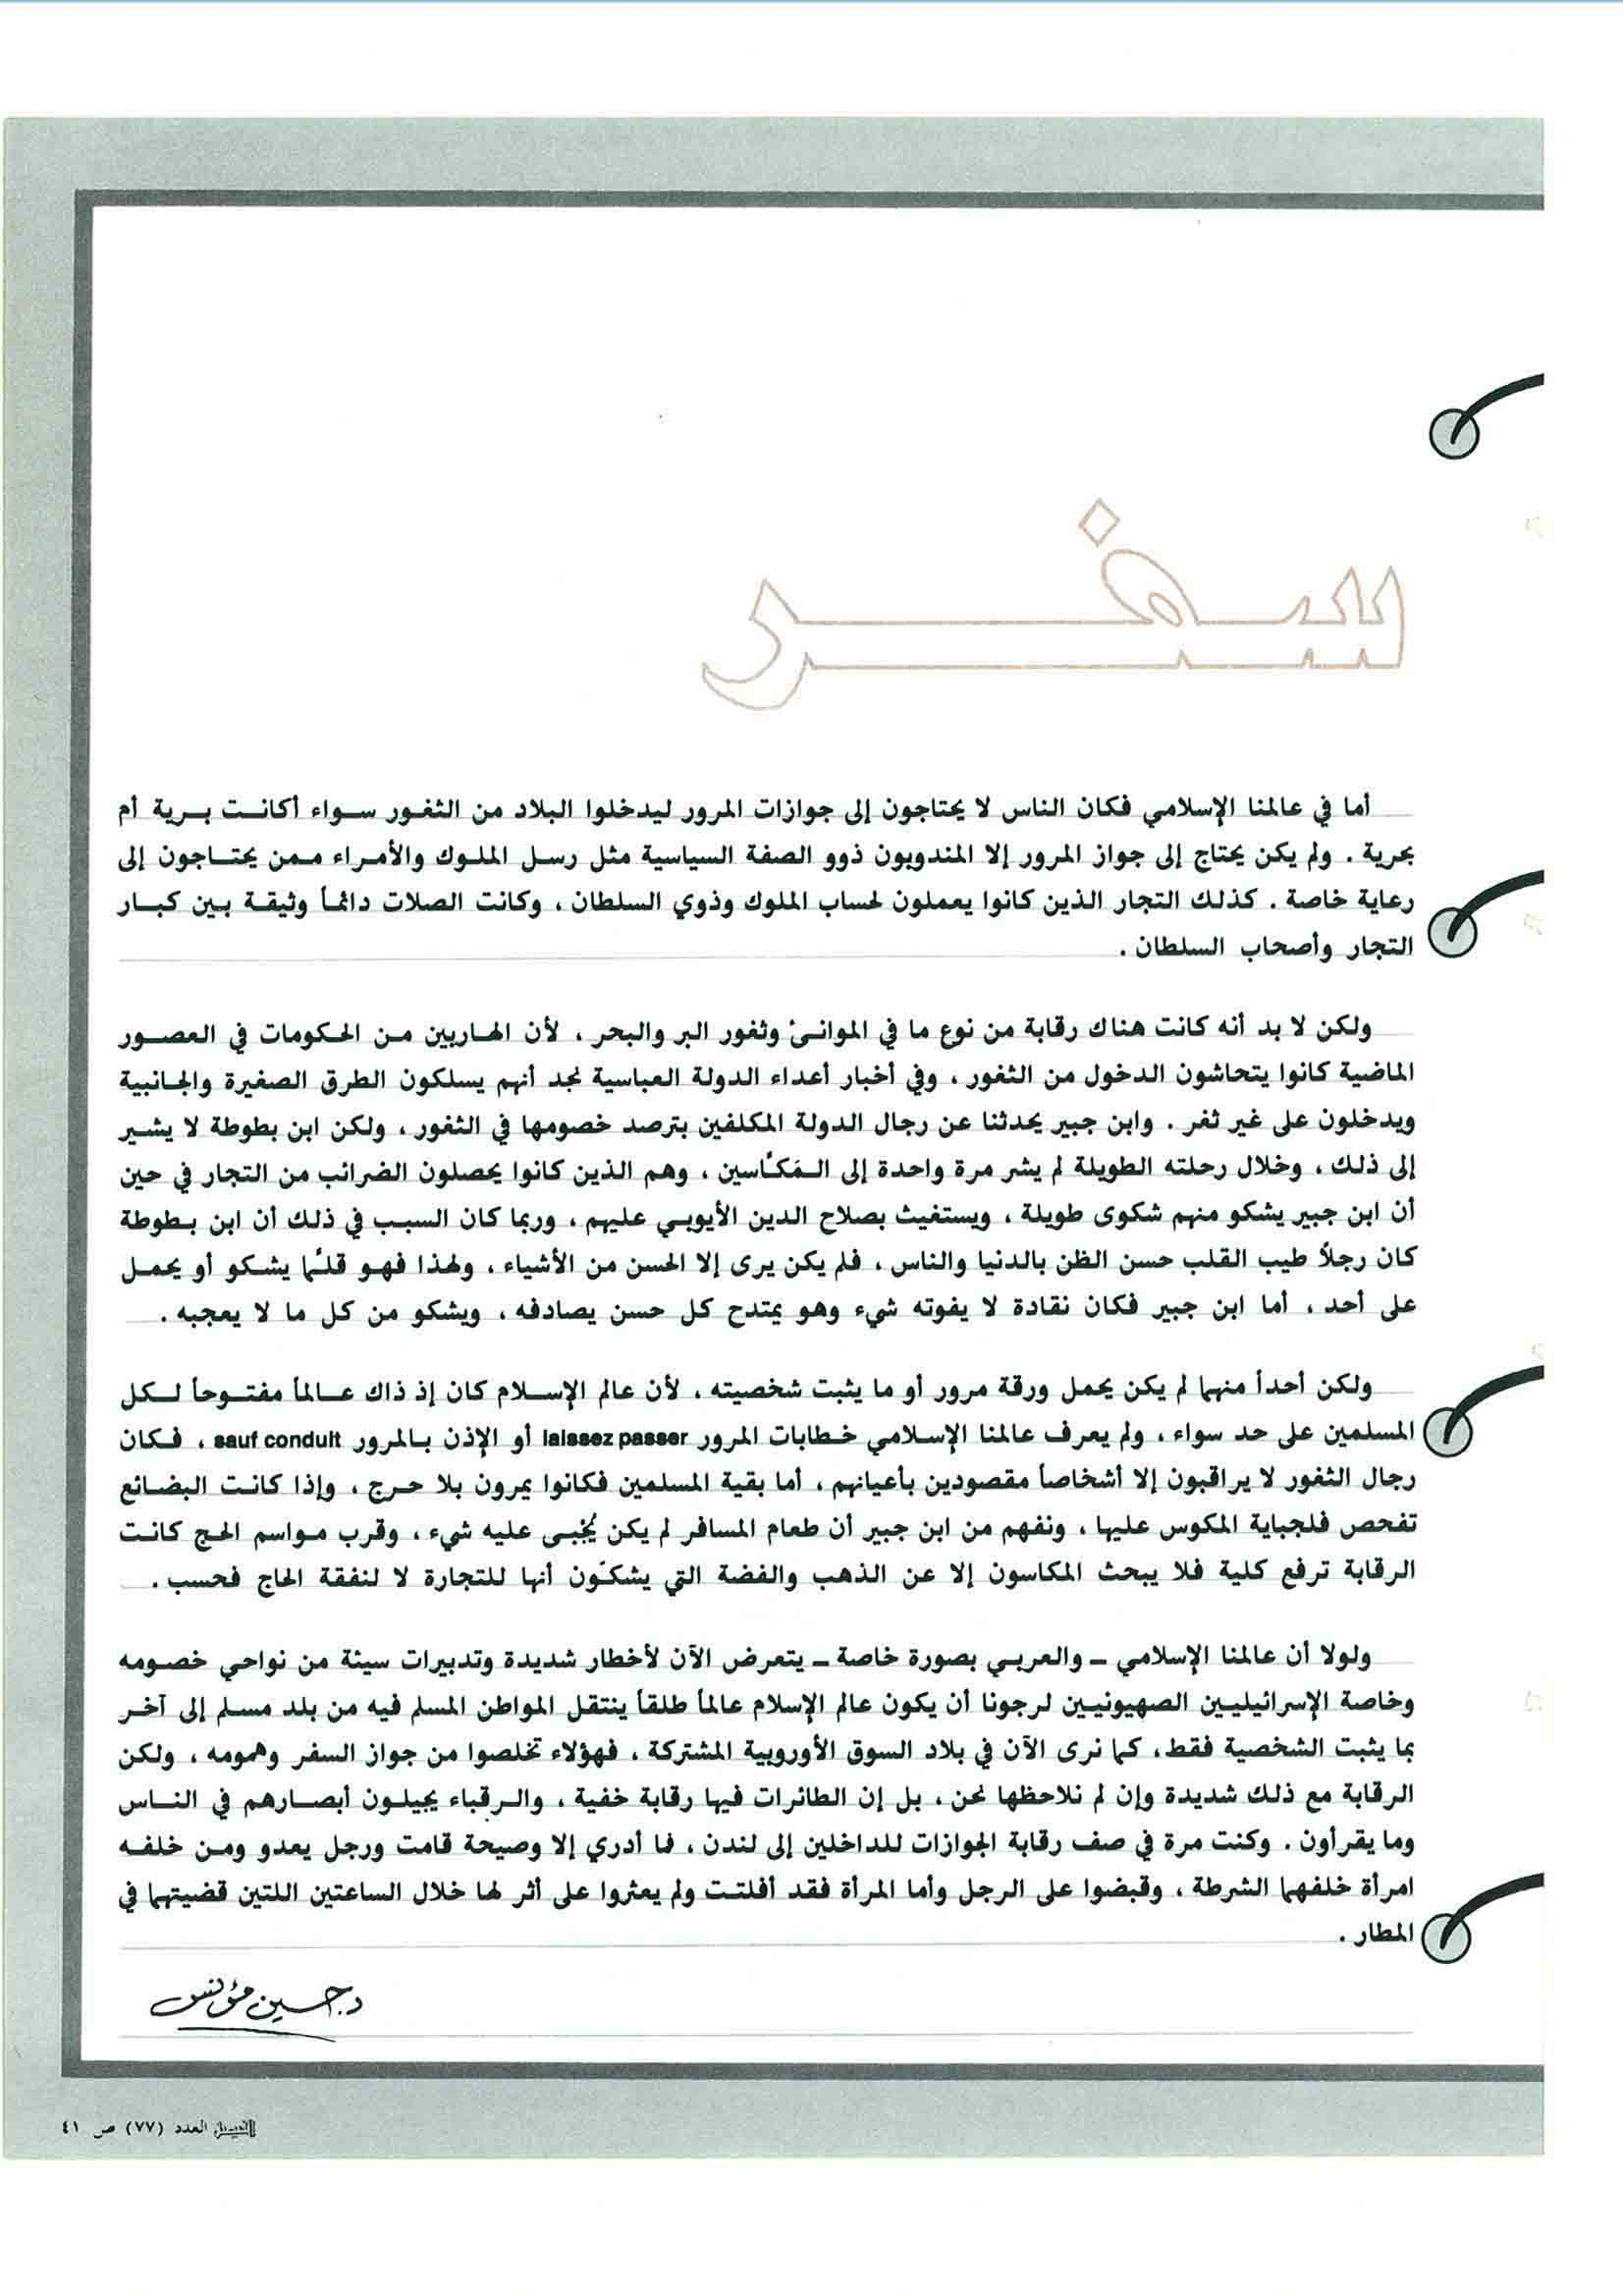 سفر
أما في عالمنا الإسلامي فكان الناس لا يحتاجون إلى جوازات المرور ليدخلوا البلاد من الثغور سواء أكانت برية أم
بحرية . ولم يكن يحتاج إلى جواز المرور إلا المندوبون ذوو الصفة السياسية مثل رسل الملوك والأمراء ممن يحتاجون إلى
رعاية خاصة . كذلك التجار الذين كانوا يعملون لحساب الملوك وذوي السلطان ، وكانت الصلات دائماً وثيقة بين كبار
التجار وأصحاب السلطان .
ولكن لا بد أنه كانت هناك رقابة من نوع ما في الموانئ وثغور البر والبحر ، لأن الهاربين من الحكومات في العصور
الماضية كانوا يتحاشون الدخول من الثغور ، وفي أخبار أعداء الدولة العباسية نجد أنهم يسلكون الطرق الصغيرة والجانبية
ويدخلون على غير ثغر . وابن جبير يحدثنا عن رجال الدولة المكلفين بترصد خصومها في الثغور ، ولكن ابن بطوطة لا يشير
إلى ذلك ، وخلال رحلته الطويلة لم يشر مرة واحدة إلى المَكَّاسين ، وهم الذين كانوا يحصلون الضرائب من التجار في حين
أن ابن جبير يشكو منهم شكوى طويلة ، ويستغيث بصلاح الدين الأيوبي عليهم ، وربما كان السبب في ذلك أن ابن بطوطة
كان رجلاً طيب القلب حسن الظن بالدنيا والناس ، فلم يكن يرى إلا الحسن من الأشياء ، ولهذا فهو قلَّما يشكو أو يحمل
على أحد ، أما ابن جبير فكان نقادة لا يفوته شيء وهو يمتدح كل حسن يصادفه ، ويشكو من كل ما لا يعجبه .
ولكن أحداً منهما لم يكن يحمل ورقة مرور أو ما يثبت شخصيته ، لأن عالم الإسلام كان إذ ذاك عالماً مفتوحاً لكل
المسلمين على حد سواء ، ولم يعرف عالمنا الإسلامي خطابات المرور laissez passer أو الإذن بالمرور sauf conduit ، فكان
رجال الثغور لا يراقبون إلا أشخاصاً مقصودين بأعيانهم ، أما بقية المسلمين فكانوا يمرون بلا حرج ، وإذا كانت البضائع
تفحص فلجباية المكوس عليها ، ونفهم من ابن جبير أن طعام المسافر لم يكن يُجْبى عليه شيء ، وقرب مواسم الحج كانت
الرقابة ترفع كلية فلا يبحث المكاسون إلا عن الذهب والفضة التي يشكّون أنها للتجارة لا لنفقة الحاج فحسب .
ولولا أن عالمنا الإسلامي – والعربي بصورة خاصة – يتعرض الآن لأخطار شديدة وتدبيرات سيئة من نواحي خصومه
وخاصة الإسرائيليين الصهيونيين لرجونا أن يكون عالم الإسلام عالماً طلقاً ينتقل المواطن المسلم فيه من بلد مسلم إلى آخر
بما يثبت الشخصية فقط ، كما نرى الآن في بلاد السوق الأوروبية المشتركة ، فهؤلاء تخلصوا من جواز السفر وهمومه ، ولكن
الرقابة مع ذلك شديدة وإن لم نلاحظها نحن ، بل إن الطائرات فيها رقابة خفية ، والرقباء يجيلون أبصارهم في الناس
وما يقرأون . وكنت مرة في صف رقابة الجوازات للداخلين إلى لندن ، فما أدري إلا وصيحة قامت ورجل يعدو ومن خلفه
امرأة خلفهما الشرطة ، وقبضوا على الرجل وأما المرأة فقد أفلتت ولم يعثروا على أثر لها خلال الساعتين اللتين قضيتهما في
المطار .
د. حسين مؤنس
الفيصل العدد (٧٧) ص ٤١